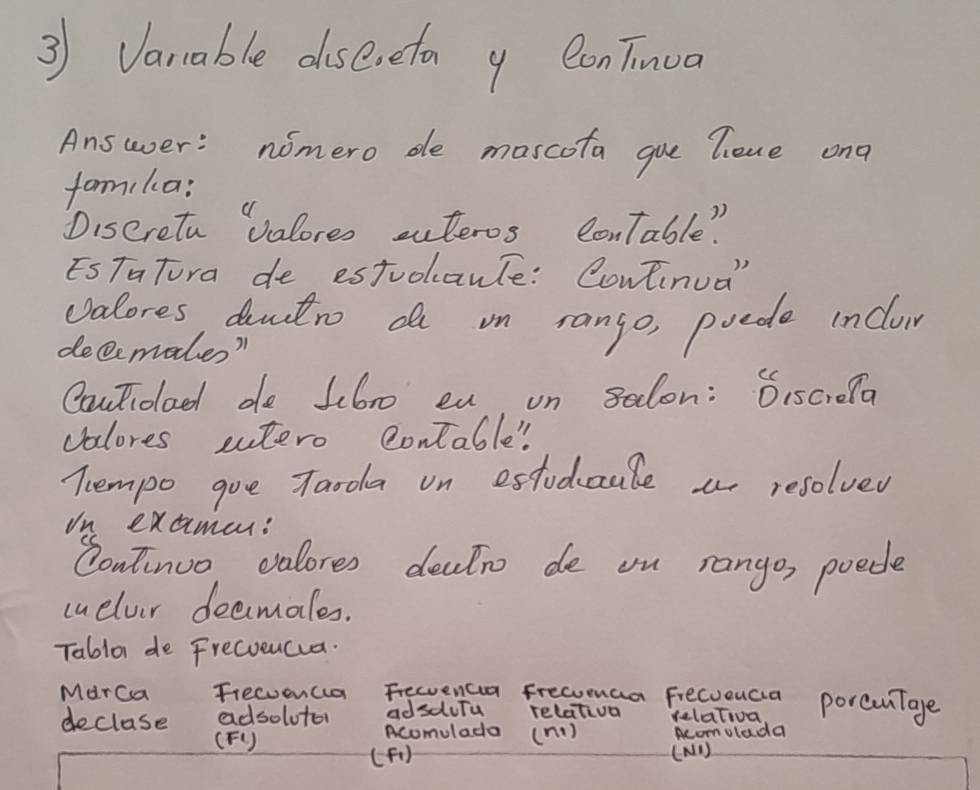 3) Variable discreta y continua
Answer: número de mascota que Tiene una
familia:
Discreta "valores enteros contable".
Estatura de estudiante: Continua"
Valores dentro de un rango, puede incluir
decimales"
Cantidad de libro en un salon: "Discreta
Valores entero contable".
Tiempo que Tarda un estudiante en resolver
un examen:
"Continuo valores dentro de un rango, puede
incluir decimales.
Tabla de Frecuencia.
Marca Frecuencia Frecuencia Frecuencia Frecuencia porcentaje
declase adsoluta adsoluta relativa relativa
(Fi) Acomulado (ni) Acomulada
(Fi) (Ni)